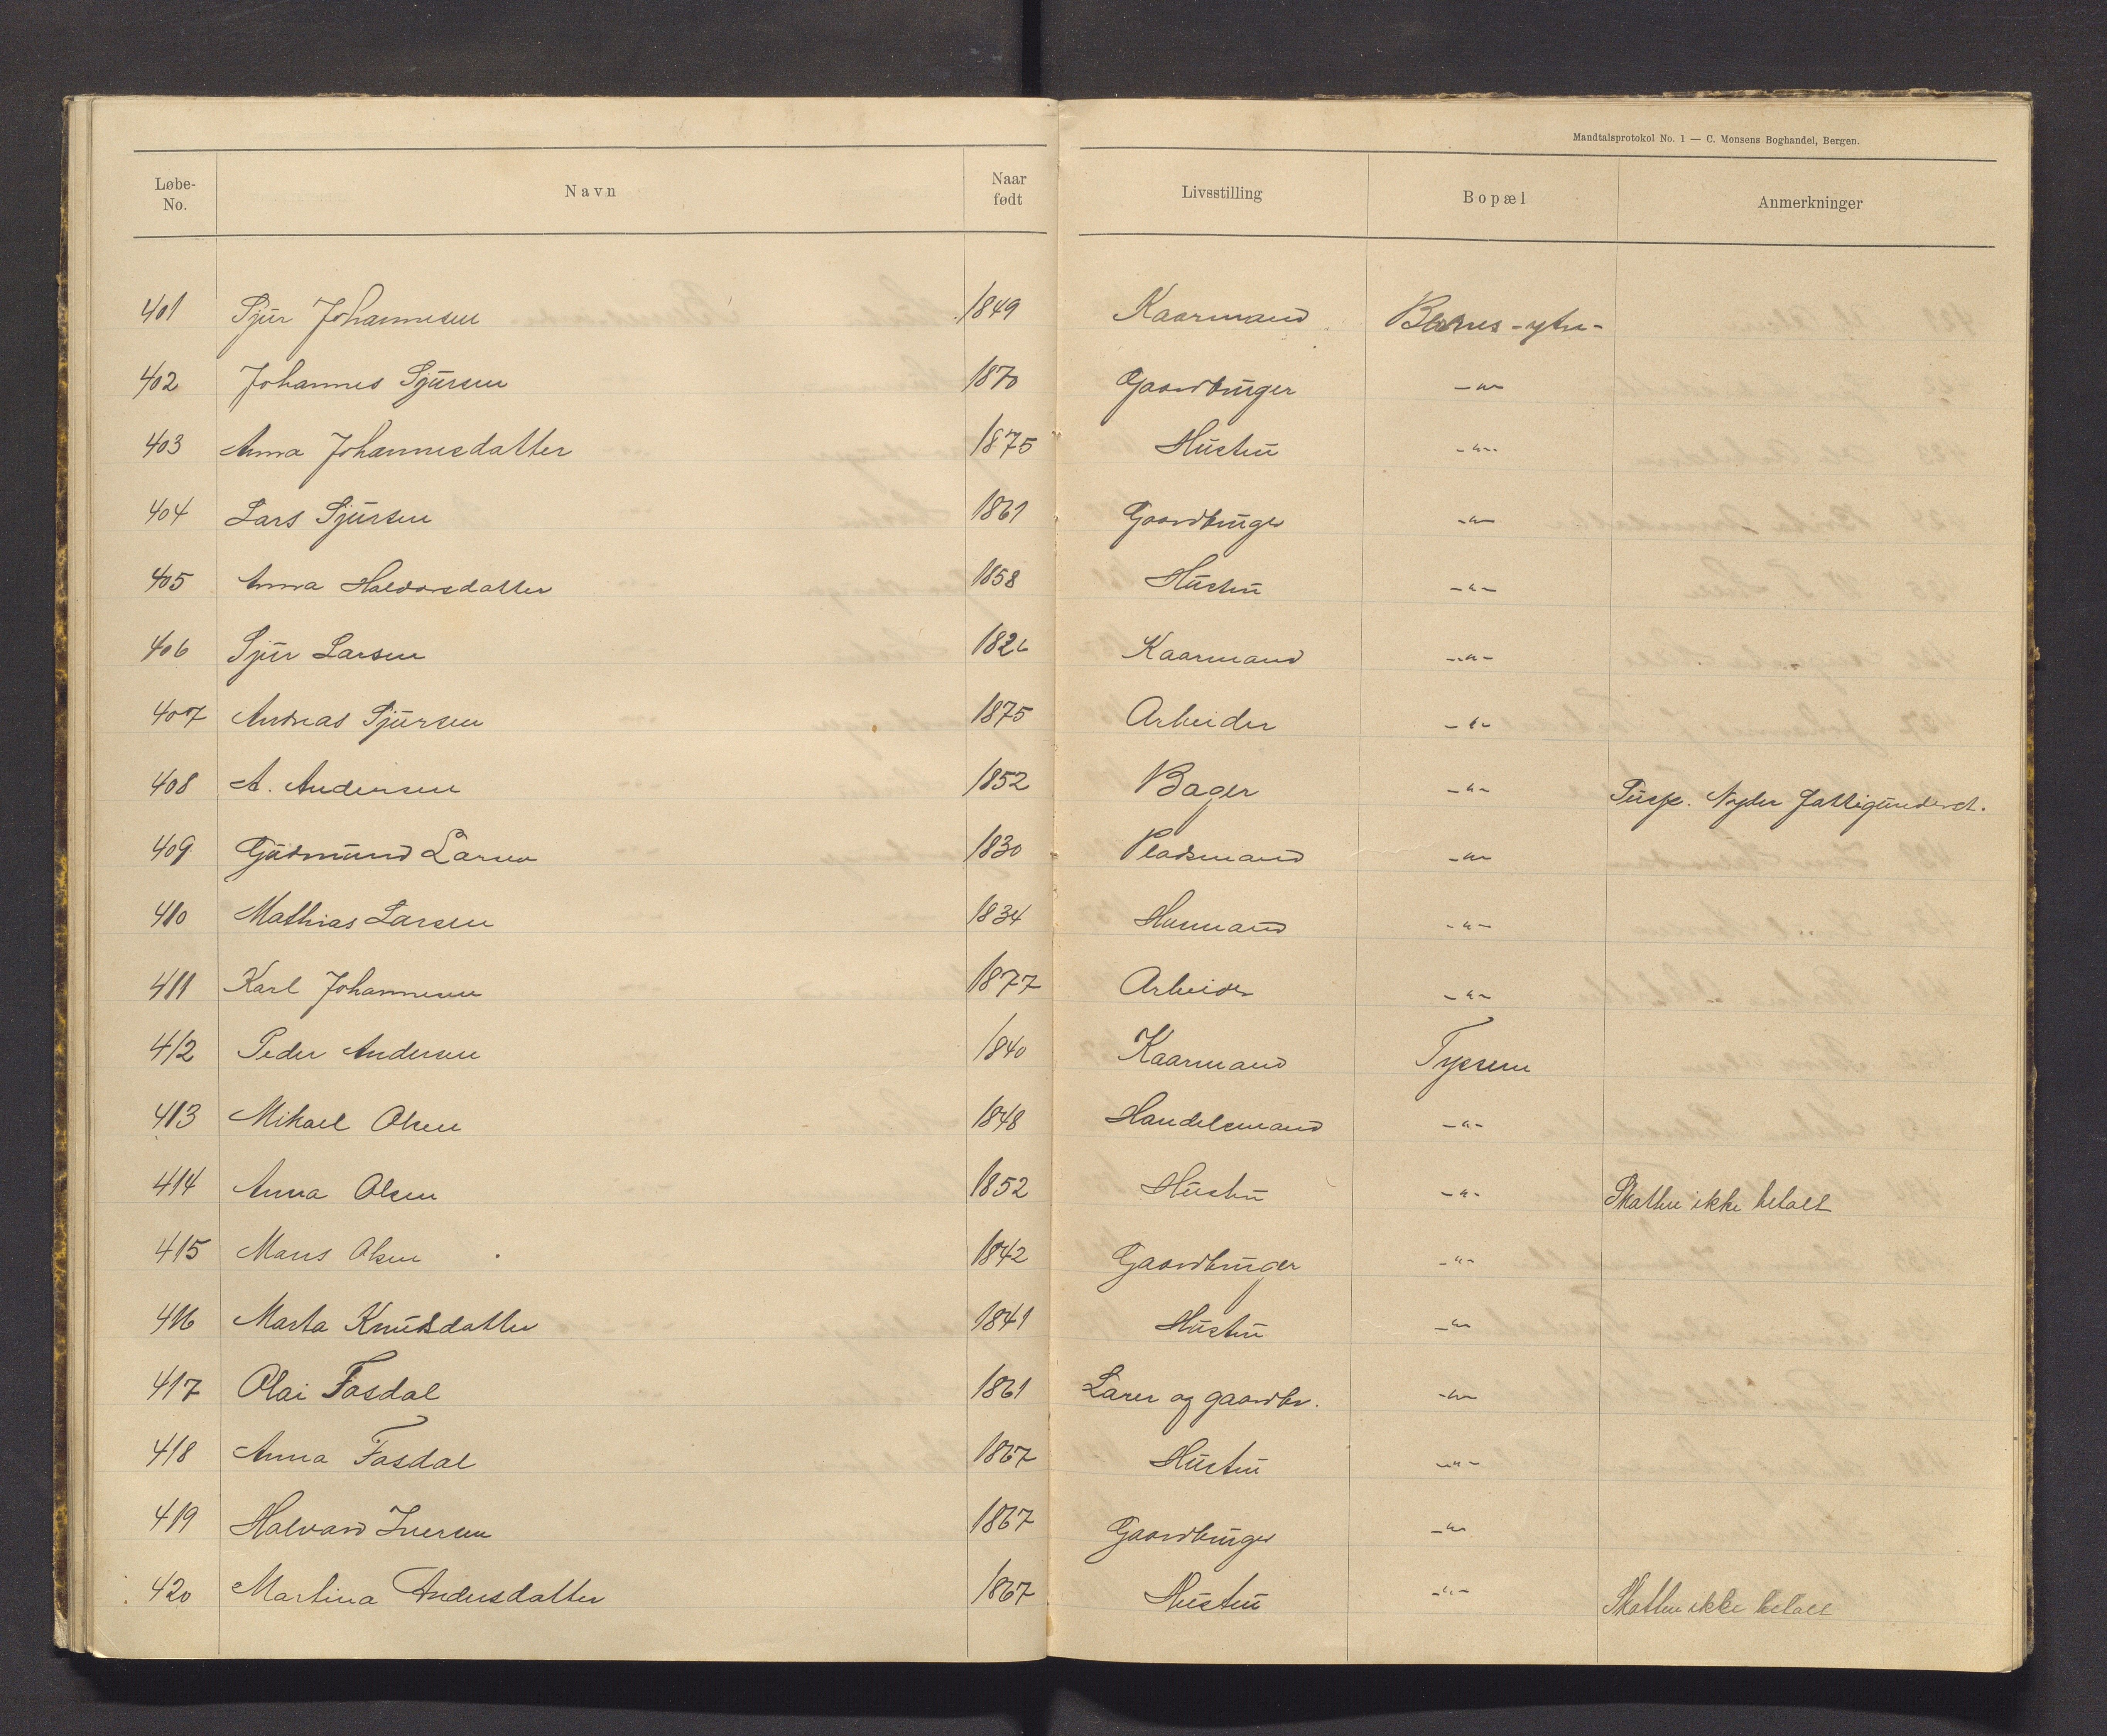 Mandtalsprotokol No. 1 — C. Monsens Boghandel, Bergen.
Løbe-No. Navn Naar født Livsstilling Bopæl Anmerkninger
401 Sjur Johannesen 1849 Kaarmand -ytre-
402 Johannes Sjursen 1870 Gaardbruger -"-
403 Anna Johannesdatter 1875 Hustru -"-
404 Lars Sjursen 1861 Gaardbruger -"-
405 Anna Halvorsdatter 1858 Hustru -"-
406 Sjur Larsen 1826 Kaarmand -"-
407 Andreas Sjursen 1875 Arbeider -"-
408 A. Andersen 1852 Bager -"- Susp. Nyder fattigunderst.
409 Gudmund Larsen 1830 Pladsmand -"-
410 Mathias Larsen 1834 Husmand -"-
411 Karl Johannesen 1877 Arbeider -"-
412 Peder Andersen 1840 Kaarmand Tyssen
413 Mikael Olsen 1848 Handelsmand -"-
414 Anna Olsen 1852 Hustru -"- Skatten ikke betalt
415 Mons Olsen 1842 Gaardbruger -"-
416 Marta Knutsdatter 1841 Hustru -"-
417 Olai Fosdal 1861 Lærer og gaardbr. -"-
418 Anna Fosdal 1867 Hustru -"-
419 Halvard Iversen 1867 Gaardbruger -"-
420 Martina Andersdatter 1867 Hustru -"- Skatten ikke betalt